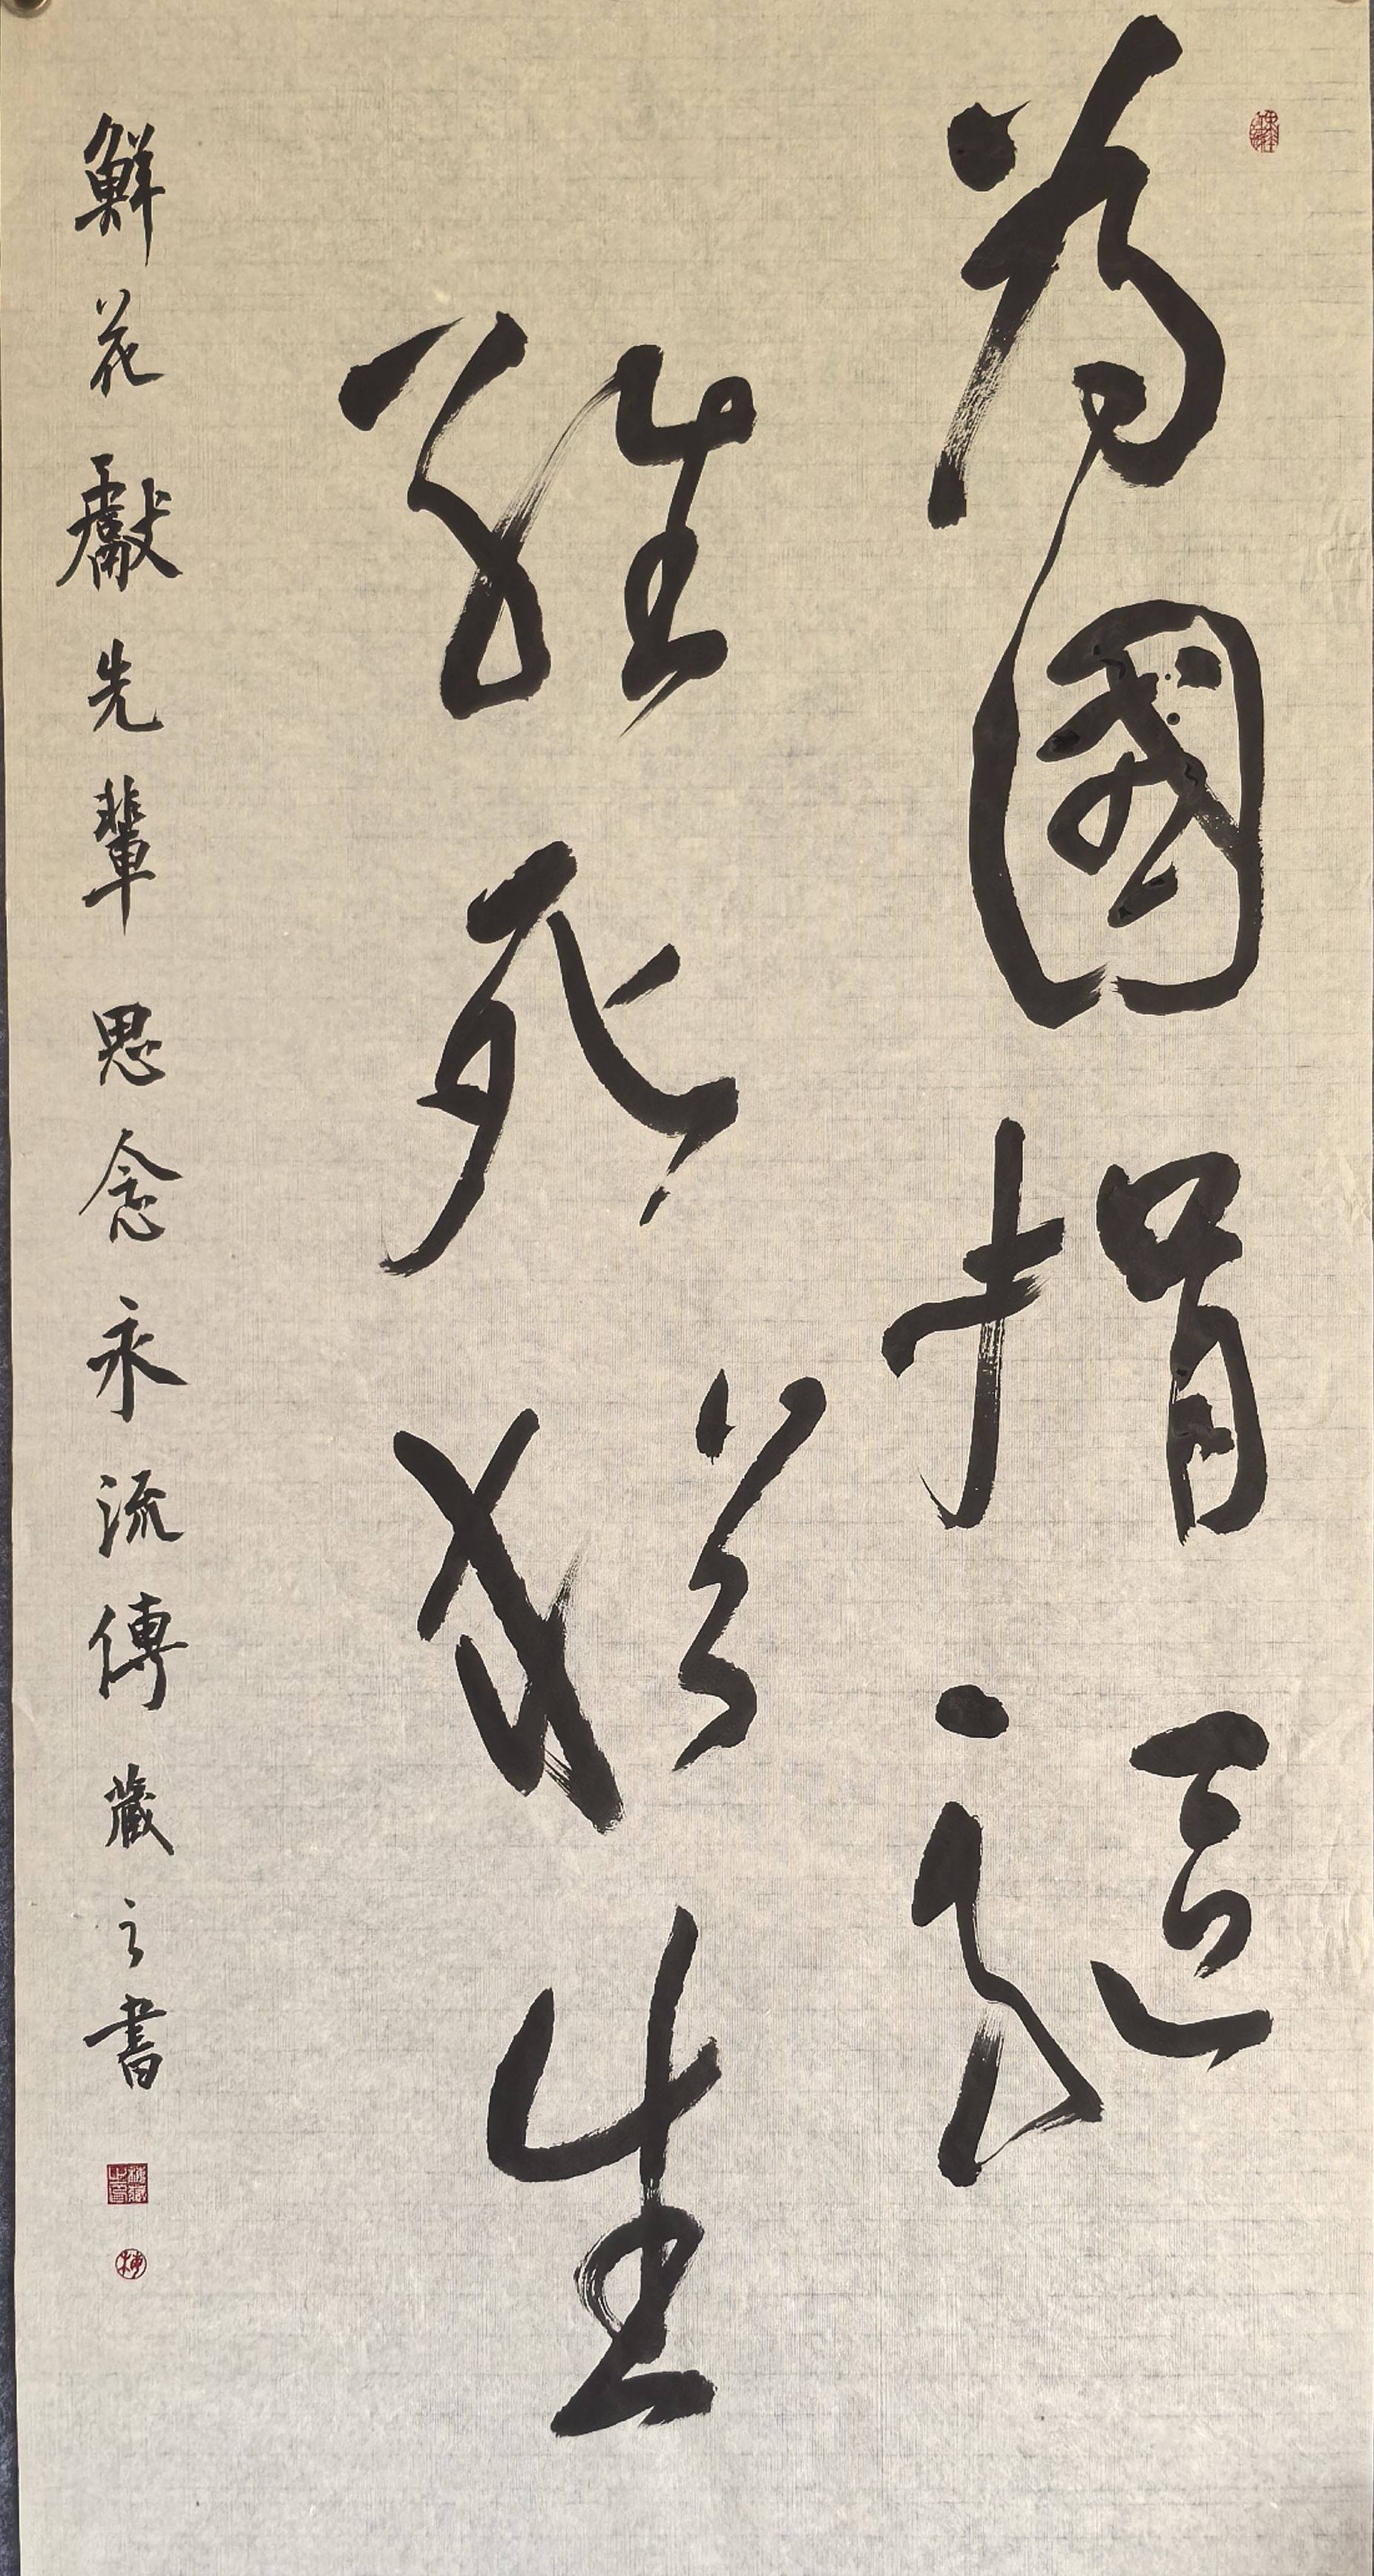 為國捐躯
雖死猶生
鮮花獻先輩思念永流傳藏之書